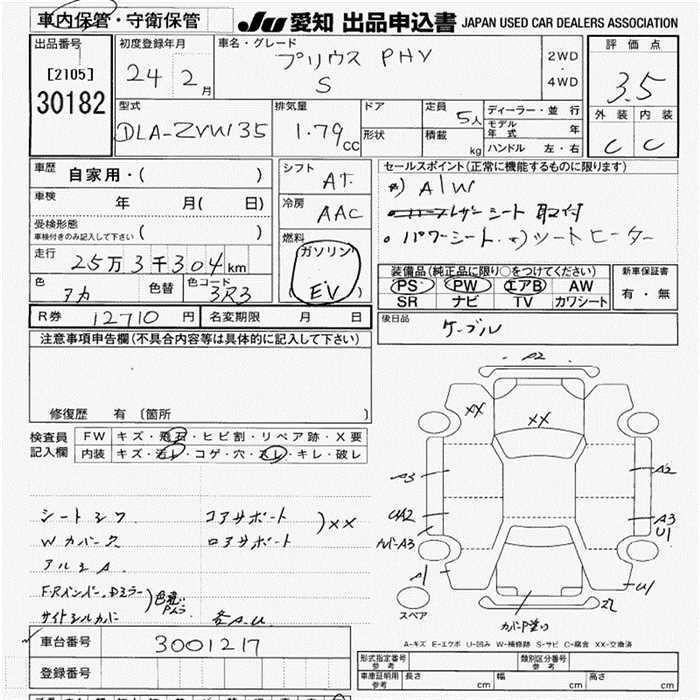 車内保管・守衛保管
JU 愛知 出品申込書 JAPAN USED CAR DEALERS ASSOCIATION
出品番号
[2105]
30182
初度登録年月
24 2月
車名・グレード
プリウス PHV
S
2WD
・
4WD
評価点
3.5
外装 内装
C C
型式
DLA-ZVW35
排気量
1.79cc
ドア
形状
定員 5人
積載 kg
ディーラー・並行
モデル年式 年
ハンドル 左・右
車歴 自家用・( )
車検 年 月( 日)
受検形態
車検付きのみ記入して下さい ( )
走行 25万3千304km
色 アカ 色替 色コード 3R3
シフト AT.
冷房 AAC
燃料
ガソリン
EV
セールスポイント(正常に機能するものに限ります)
A/W
レザーシート 取付
パワーシート シートヒーター
装備品(純正品に限り○をつけてください)
PS PW エアB AW
SR ナビ TV カワシート
新車保証書
有・無
R券 12710円 名変期限 月 日
後日品
ケーブル
注意事項申告欄(不具合内容等は具体的に記入して下さい)
修復歴 有 〔箇所 〕
検査員記入欄
FW キズ・飛石・ヒビ割・リペア跡・X要
内装 キズ・汚レ・コゲ・穴・スレ・キレ・破レ
シートシワ
Wカバーク
アルミA
F.Rバンパー.Dミラー
サイドシルカバー
色違い
コアサポート
ロアサポート
XX
各A.U.
A2
XX
XX
A3
A2
A3
U1
A1
U1
スペア
A-キズ E-エクボ U-凹み W-補修跡 S-サビ C-腐食 XX-交換済
車台番号 3001217
登録番号
形式指定番号
参考
類別区分番号
参考
車庫証明用
参考
長さ cm 幅 cm 高さ cm